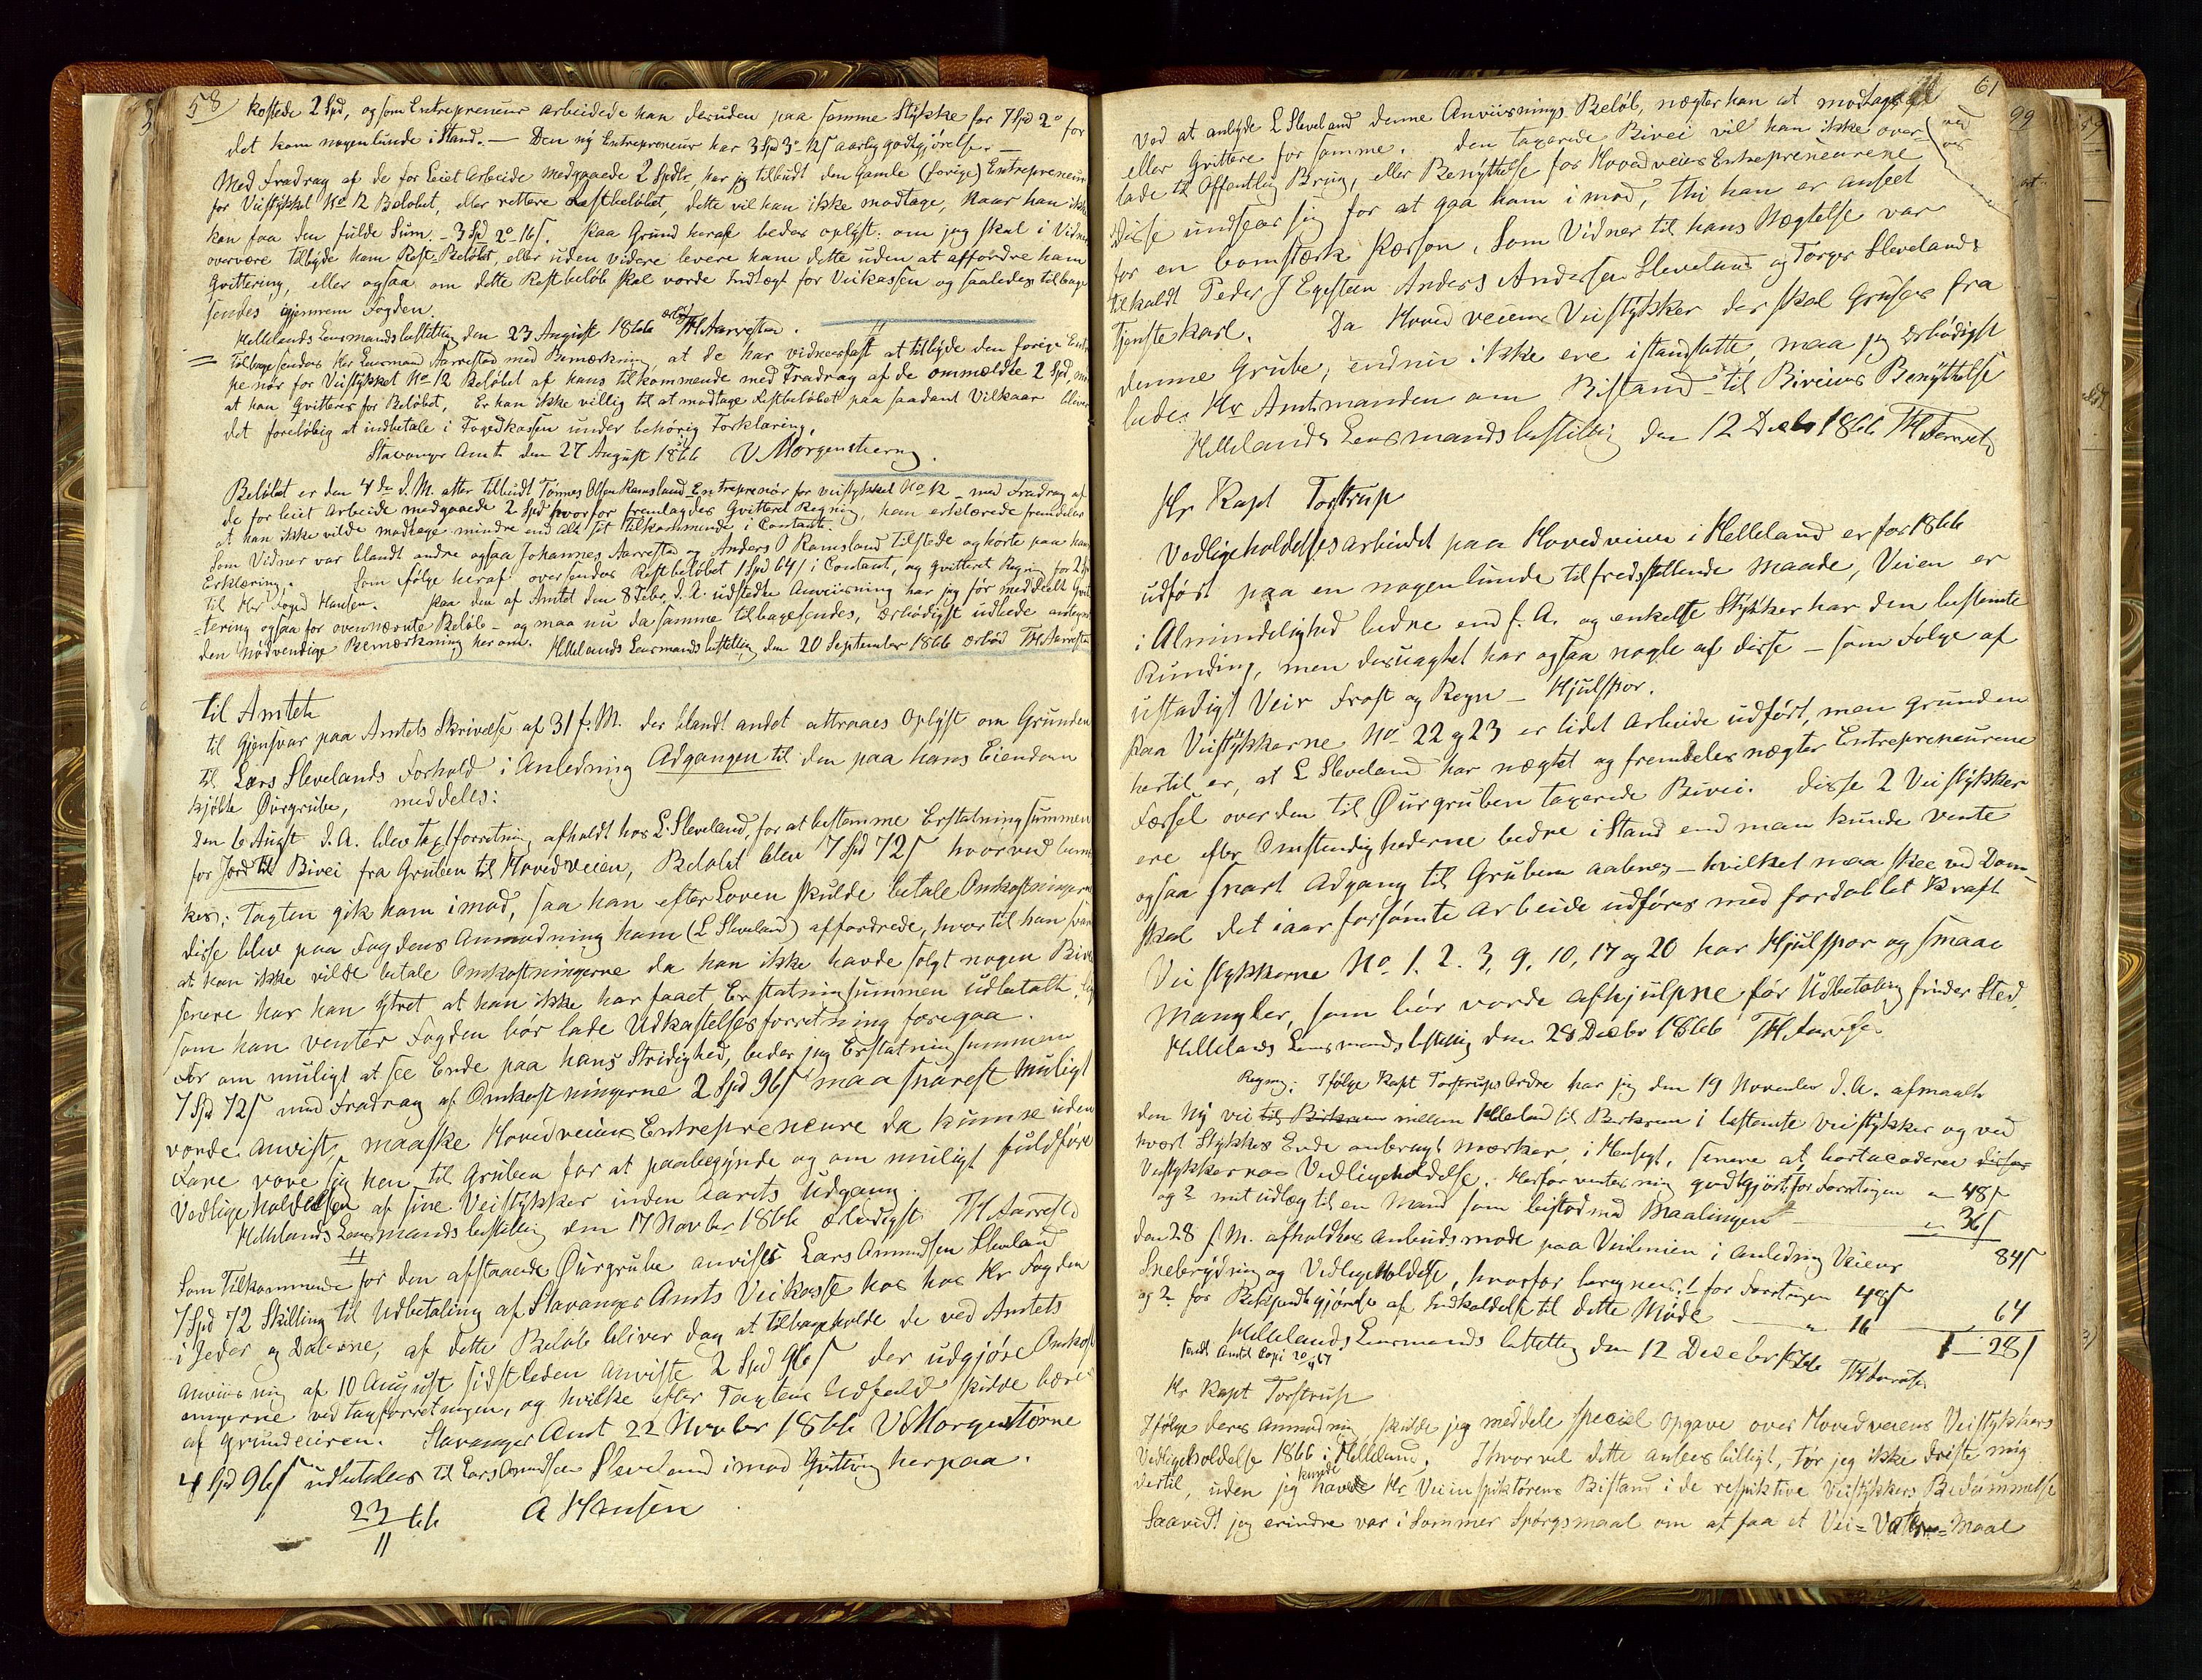 58 kostede 2 Spd, og som Entrepreneur arbeidede han desuden paa samme Stykke for 7 Spd 2° for
det kom nogenlunde i Stand. — Den ny Entrepreneur har 3 Spd 3° 12 s aarlig godtgjørelse. —
Med Fradrag af de for Leiet Arbeide medgaaede 2 Spdlr, har jeg tilbudt den Gamle (forige) Entrepreneur
for Veistykket No 12 Beløbet, eller rettere Restbeløbet, dette vil han ikke modtage, naar han ikke
kan faa den fulde Sum - 3 Spd 2° 16 s. Paa Grund heraf bedes oplyst: om jeg skal i Vidners
overvære tilbyde ham Rest-Beløbet, eller uden videre levere ham dette uden at affordre ham
Qvittering, eller ogsaa om dette Restbeløb skal vorde Indlagt for Veikassen og saaledes tilbage
sendes igjennem Fogden.
Hellelands Lensmandsbestilling den 23 August 1866 ærb. TH Aarrestad.
= Tilbagesendes Hr Lensmand Aarrestad med Bemærkning, at de har vidnesfast at tilbyde den forige Entre
penør for Veistykket No 12 Beløbet af hans tilkommende med Fradrag af de ommeldte 2 Spd, mod
at han qvitterer for Beløbet, Er han ikke villig til at modtage Restbeløbet paa saadant Vilkaar bliver
det foreløbig at indbetale i Fogedkassen under behørig Forklaring.
Stavanger Amt den 27 August 1866 V. Morgenstierne.
Beløbet er den 4de d. M. atter tilbudt Tønnes Olsen Ramsland Entreprenør for veistykket No 12 - med Fradrag af
de for leiet Arbeide medgaaede 2 Spd hvorfor fremlagdes Qvitteret Regning, han erklærede fremdeles
at han ikke vilde modtage mindre end Alt sit tilkommende i Contant.
Som Vidner var blandt andre ogsaa Johannes Aarrestad og Anders O Ramsland tilstede og hørte paa hans
Erklæring. Som følge heraf oversendes Restbeløbet 1 Spd 64 s i Contant, og qvitteret Regning for 2 Spd
til Hr Foged Hansen. Paa den af Amtet den 8 Febr. d. A. udstedte Anviisning har jeg før meddeelt Qvit-
tering ogsaa for ovennævnte Beløb - og maa nu da samme tilbagesendes, ærbødigst udbede antegnet
den nødvendige Bemærkning herom. Hellelands Lensmandsbestilling den 20 September 1866 ærbød TH Aarrestad
Til Amtet
Til Gjensvar paa Amtets Skrivelse af 31 f. M. der blandt andet attraaes Oplyst om Grunden
til Lars Slevelands Forhold i Anledning Adgangen til den paa hans Eiendom
kjøbte Øurgrube, meddeles:
Den 6 Augst d. A. blev Taxtforretning afholdt hos L. Sleveland, for at bestemme Erstatningsummen
for Jord til Bivei fra Gruben til Hovedveien, Beløbet blev 7 Spd 72 s hvorved bemær
kes: Taxten gik ham imod, saa han efter Loven skulde betale Omkostningerne
disse blev paa Fogdens Anmodning ham (L Sleveland) affordrede, hvortil han svarede
at han ikke vilde betale Omkostningerne da han ikke havde solgt nogen Bivei
senere har han ytret at han ikke har faaet Erstatningsummen udbetalt,
som han venter Fogden bør lade Udkastelsesforretning foregaa.
For om muligt at see Ende paa hans Stridighed, beder jeg Erstatningsummen
7 Spd 72 s med Fradrag af Omkostningerne 2 Spd 96 s maa snarest muligt
vorde anvist, maaske Hovedveiens Entrepreneure da kunne uden
Fare vove sig hen til Gruben for at paabegynde og om muligt fuldføre
Vedligeholdelsen af sine Veistykker inden Aarets Udgang
Hellelands Lensmandsbestilling den 17 Novbr 1866 ærbødigst TH Aarrestad
Som Tilkommende for den afstaaede Øurgrube anvises Lars Omundsen Sleveland
7 Spd 72 Skilling til Udbetaling af Stavanger Amts Veikasse hos hos Hr Fogden
i Jeder og Dalerne, af dette Beløb bliver dog at tilbageholde de ved Amtets
Anviisning af 10 August sidstleden anviste 2 Spd 96 s der udgjøre Omkost
ningerne ved taxtforretningen, og hvilke efter Taxtens Udfald skulde bæres
af Grundeieren. Stavanger Amt 22 Novber 1866 V Morgenstierne
4 Spd 96 s udbetales til Lars Omundsen Sleveland imod Qvittring herpaa.
23/11 66 A Hansen
61
99
Ved at anbyde L Sleveland denne Anviisnings Beløb, nægter han at modtage det
eller Qvittere for samme. Den taxerede Bivei vil han ikke over-
lade til Offentlig Brug, eller Benyttelse for Hovedveiens Entrepreneurene
disse undseer sig for at gaa ham imod, thi han er anseet
for en bomstærk Person. Som Vidner til hans Nægtelse var
tilkaldt Peder J Egesteen Anders Andersen Sleveland og Torger Slevelands
Tjenstekarl. Da Hovedveiens Veistykker der skal Gruses fra
denne Grube, endnu ikke ere istandsatte, maa jeg ærbødigst
bede Hr Amtmanden om Bistand til Biveiens Benyttelse
Hellelands Lensmandsbestilling den 12 Decbr 1866 TH Aarrestad
Hr Kapt Torstrup
Vedligeholdelsesarbeidet paa Hovedveien i Helleland er for 1866
udført paa en nogenlunde tilfredsstillende Maade, Veien er
i Almindelighed bedre end f. A. og enkelte Stykker har den bestemte
Runding, men desuagtet har ogsaa nogle af disse - som Følge af
ustadigt Veir Frost og Regn - Hjulspor.
Paa Veistykkerne No 22 og 23 er lidet Arbeide udført, men Grunden
hertil er, at L Sleveland har nægtet og fremdeles nægter Entrepreneurene
Færsel over den til Øurgruben taxerede Bivei. Disse 2 Veistykker
ere efter Omstendighederne bedre i Stand end man kunde vente
ogsaa snart Adgang til Gruben aabnes - hvilket maa skee ved Dom -
skal det iaar forsømte Arbeide udføres med fordoblet Kraft
Veistykkerne No 1. 2. 3, 9, 10, 17 og 20 har Hjulspor og smaae
Mangler, som bør vorde afhjulpne før Udbetaling finder Sted.
Hellelands Lensmandsbestilling den 28 Decbr 1866 TH Aarrestad
Regning: Ifølge Kapt Torstrups Ordre har jeg den 19 November d. A. afmaalt
den ny vei til Birkrem mellem Helleland til Berkrem i bestemte veistykker og ved
hvert Stykkes Ende anbragt Mærker, i Hensigt, senere at bortaccordere disses
Veistykkernes Vedligeholdelse. Herfor ventes mig godtgjort for Forretningen " 48 s
og 2 mit udlæg til en Mand som bistod med Maalingen " 36 s
84 s
Den 28 s. M. afholdtes Anbudsmøde paa Veilinien i Anledning Veiens
Snebrydning og Vedligeholdelse, hvorfor beregnes: 1 for Forretningen 48 s
og 2 for Bekjendtgjørelse af Indkaldelse til dette Møde — " 16 — 64
1 — 28 s
Hellelands Lensmandsbestilling den 12 Decebr 1866 TH Aarrestad
sendt Amtet Copi 20/4 67
Hr Kapt Torstrup
Ifølge deres Anmodning, skulde jeg meddele special Opgave over Hovedveiens Veistykkers
Vedligeholdelse 1866 i Helleland. Ihvorvel dette ansees billigt, tør jeg ikke driste mig
dertil, uden jeg kunde havde Hr Veiinspektørens Bistand i de respektive Veistykkers Bedømmelse
Saavidt jeg erindre var i Sommer Spørgsmaal om at faa et Vei=Vatter=Maal